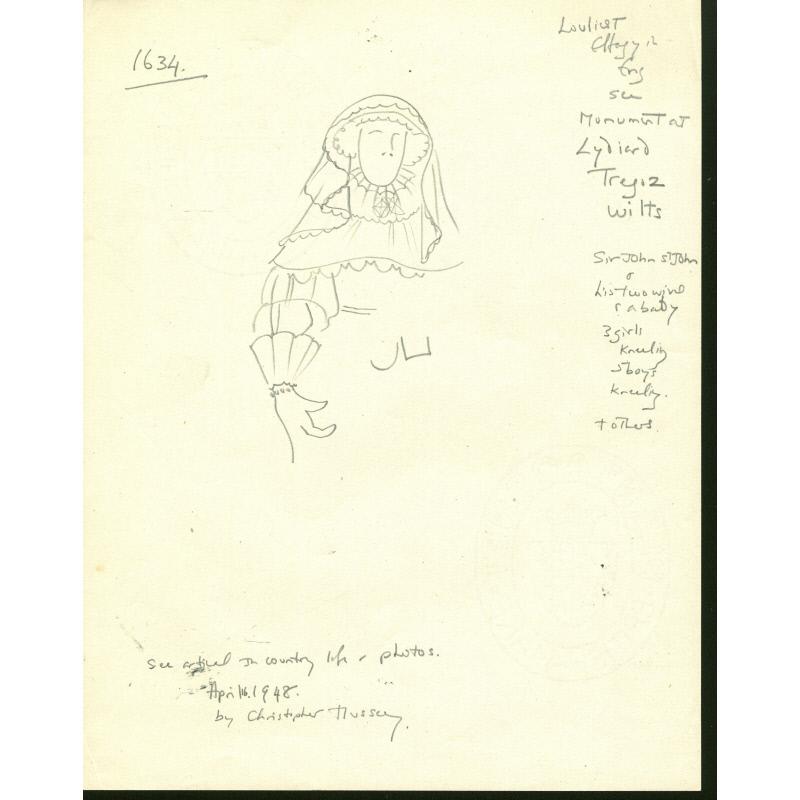 1634.
Loveliest
Effegy in
Eng
see
Monument at
Lydiard
Tregoz
Wilts
Sir John St John
&
his two wives
& a baby
3 girls
kneeling
5 boys
kneeling.
+ others.
See articel in country life & photos.
April 16. 1948.
by Christopher Hussey.